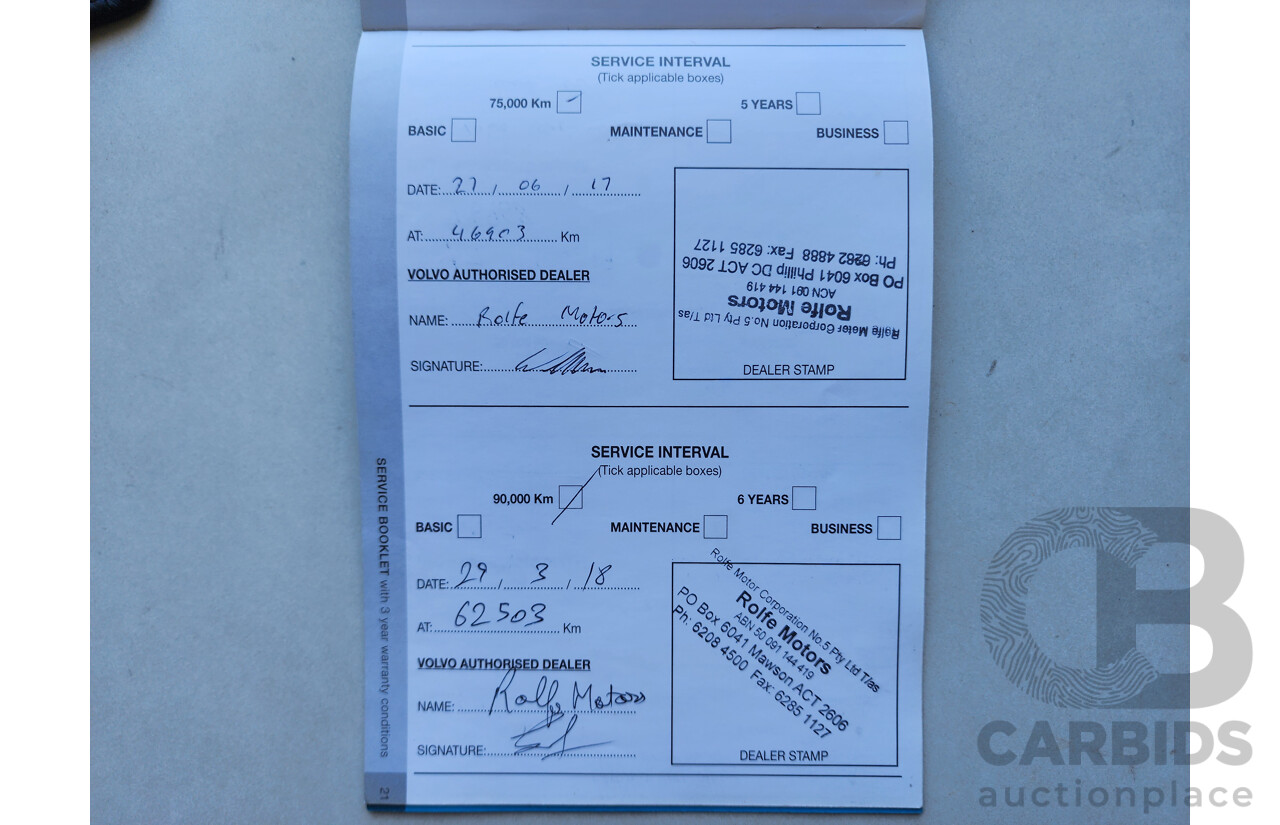 SERVICE INTERVAL
(Tick applicable boxes)
75,000 Km 5 YEARS
BASIC MAINTENANCE BUSINESS
DATE: 27 / 06 / 17
AT: 46903 Km
VOLVO AUTHORISED DEALER
NAME: Rolfe Motors
SIGNATURE:
Rolfe Motor Corporation No.5 Pty Ltd T/as
Rolfe Motors
ACN 091 144 419
PO Box 6041 Phillip DC ACT 2606
Ph: 6282 4888 Fax: 6285 1127
DEALER STAMP
SERVICE INTERVAL
(Tick applicable boxes)
90,000 Km 6 YEARS
BASIC MAINTENANCE BUSINESS
DATE: 29 / 3 / 18
AT: 62503 Km
VOLVO AUTHORISED DEALER
NAME: Rolfe Motors
SIGNATURE:
Rolfe Motor Corporation No.5 Pty Ltd T/as
Rolfe Motors
ABN 50 091 144 419
PO Box 6041 Mawson ACT 2606
Ph: 6208 4500 Fax: 6285 1127
DEALER STAMP
SERVICE BOOKLET with 3 year warranty conditions
21
CB
CARBIDS
auctionplace